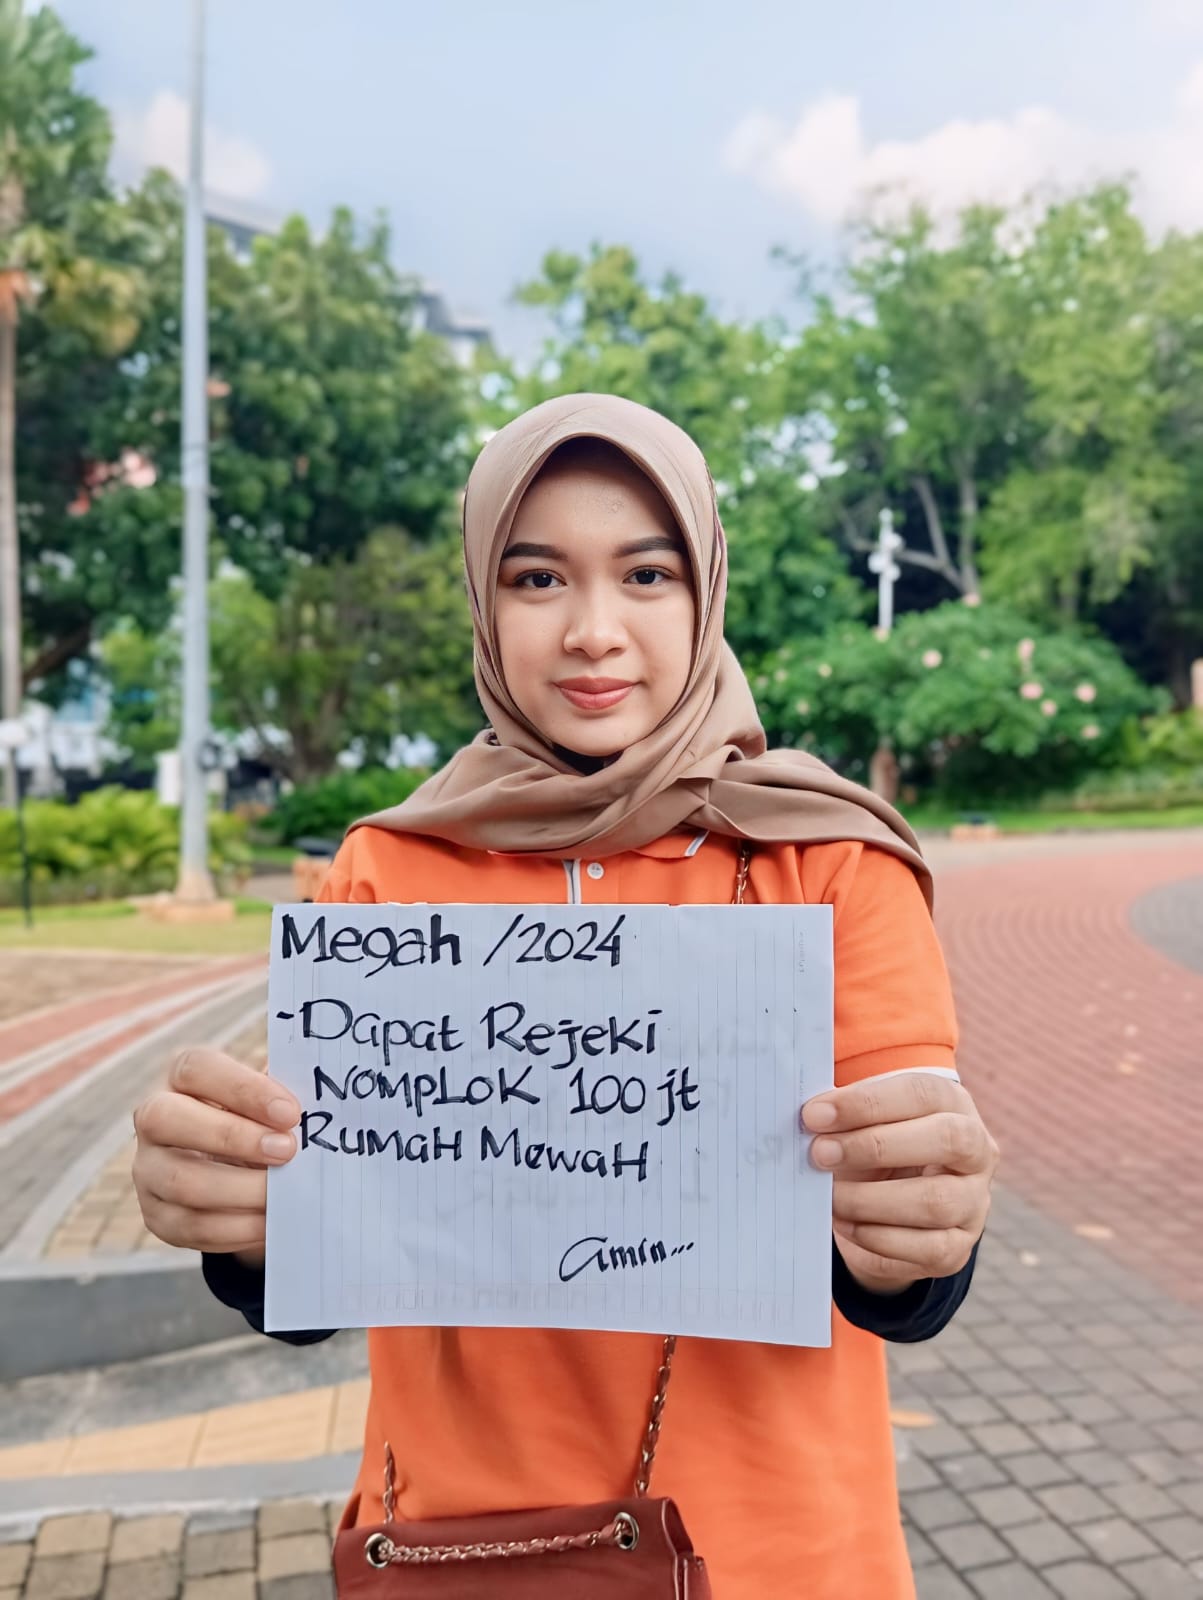 Megah /2024
-Dapat Rejeki
NOMPLOK 100 jt
RUMAH MEWAH
amin...